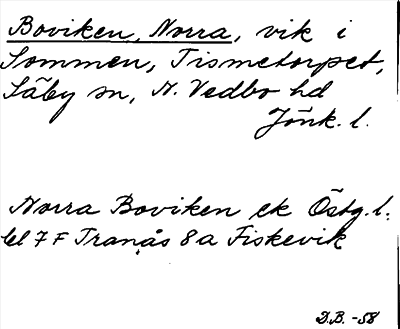 Boviken, Norra, vik i
Sommen, Tismetorpet,
Säby sn, N. Vedbo hd
Jönk. l.
Norra Boviken ek Östg. l.
bl 7 F Tranås 8a Fiskevik
D.B. -58